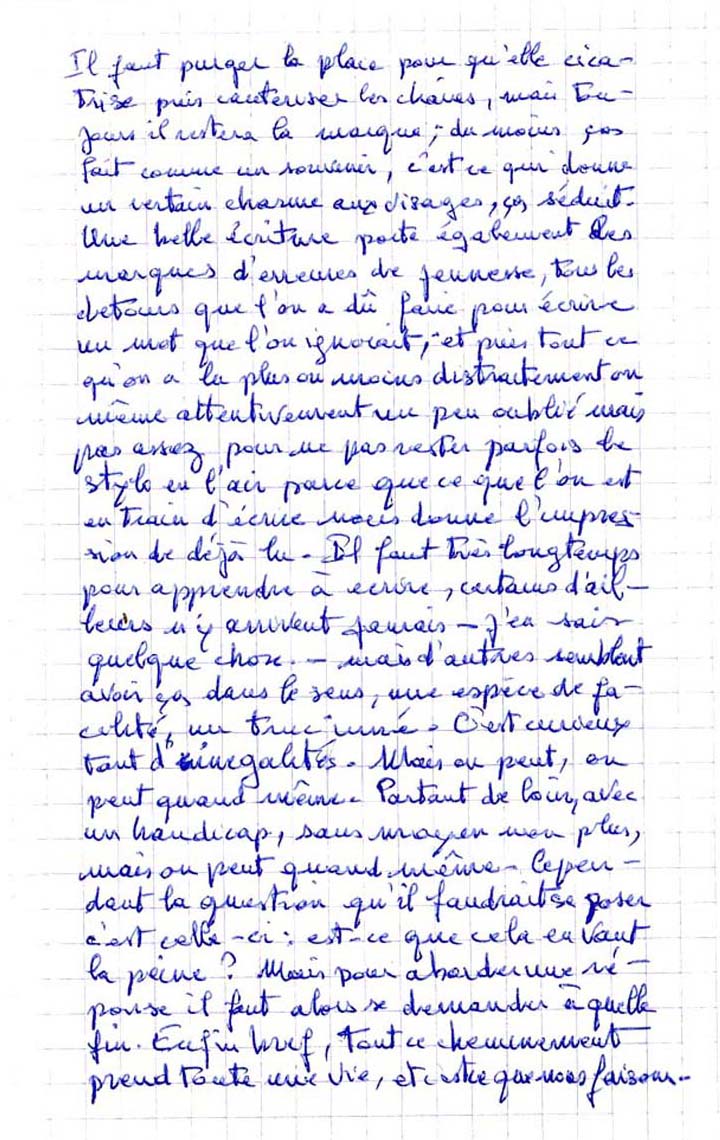 Il faut purger la plaie pour qu'elle cica-
trise puis cauteriser les chairs, mais tou-
jours il restera la marque, du moins ças
fait comme un souvenir, c'est ce qui donne
un certain charme aux visages, ças séduit.
Une belle écriture porte également des
marques d'erreurs de jeunesse, tous les
detours que l'on a dû faire pour écrire
un mot que l'on ignorait, et puis tout ce
qu'on a lu plus ou moins distraitement ou
même attentivement un peu oublié mais
pas assez pour ne pas rester parfois le
stylo en l'air parce que ce que l'on est
en train d'écrire nous donne l'impres-
sion de déjà lu. Il faut très longtemps
pour apprendre à ecrire, certains d'ail-
leurs n'y arrivent jamais - j'en sais
quelque chose. - mais d'autres semblent
avoir ças dans le sens, une espèce de fa-
cilité, un truc inné. C'est curieux
tant d'inegalités. Mais on peut, on
peut quand même. Partant de loin, avec
un handicap, sans moyen non plus,
mais on peut quand même. Cepen-
dant la question qu'il faudrait se poser
c'est celle-ci : est-ce que cela en vaut
la peine ? Mais pour aborder une ré-
ponse il faut alors se demander à quelle
fin. Enfin bref, tout ce cheminement
prend toute une vie, et c'est ce que nous faisons.